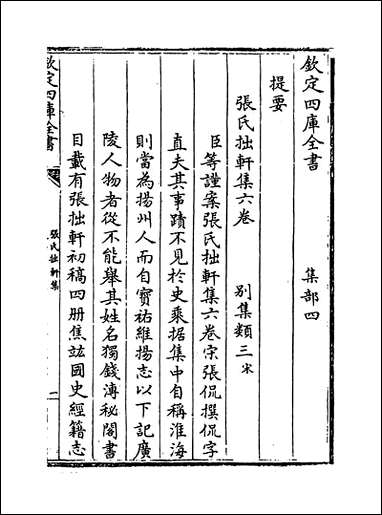 欽定四庫全書　集部四
提要
張氏拙軒集六卷　別集類三宋
臣等謹案張氏拙軒集六卷宋張侃撰侃字
直夫其事蹟不見於史乘据集中自稱淮海
則當為揚州人而自寶祐維揚志以下記廣
陵人物者從不能舉其姓名獨錢溥秘閣書
目載有張拙軒初稿四册焦竑國史經籍志
欽定四庫全書
張氏拙軒集
一